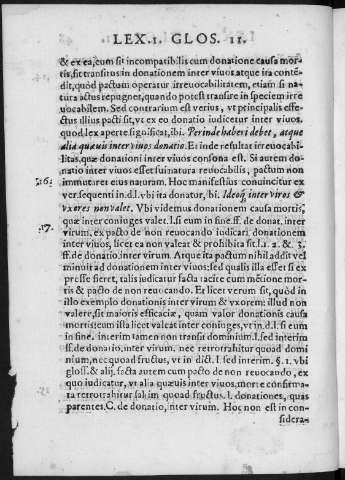 LEX. I. GLOS. II.
& ex ea, cum sit incompatibilis cum donatione causa mor-
tis, fit transitus in donationem inter viuos atque ita conte-
dit, quòd pactum operatur irreuocabilitatem, etiam si na-
tura actus repugnet, quando potest transire in speciem irre
uocabilem. Sed contrarium est verius, vt principalis effe-
ctus illius pacti sit, vt ex eo donatio iudicetur inter viuos.
quod lex aperte significat, ibi. Perinde haberi debet, atque
alia quæuis inter viuos donatio. Et inde resultat irreuocabi-
litas, quæ donationi inter viuos consona est. Si autem do-
natio inter viuos esset sui natura reuocabilis, pactum non
16. immutaret eius naturam. Hoc manifestius conuincitur ex
ver. sequenti in. d. l. vbi ita donatur, ibi. Ideoq; inter viros &
vxores non valet. Vbi videmus donationem causa mortis,
quæ inter coniuges valet. l. si eum in fine. ff. de donat. inter
17. virum, ex pacto de non reuocando iudicari donationem
inter viuos, licet ea non valeat & prohibita sit. l. 1. 2. & 3.
ff. de donatio. inter virum. Atque ita pactum nihil addit vel
minuit ad donationem inter viuos: sed qualis illa esset si ex
presse fieret, talis iudicatur facta tacite cum mētione mor-
tis & pacto de non reuocando. Et licet verum sit, quòd in
illo exemplo donationis inter virum & vxorem: illud non
valere, sit maioris efficaciæ, quam valor donationis causa
mortis cum illa licet valeat inter coniuges, vt in. d. l. si eum
in fine. interim tamen non transit dominium. l. sed interim
ff. de donatio. inter virum. nec retrotrahitur quoad domi
nium, nec quoad fructus, vt in dict. l. sed interim. §. 1. vbi
gloss. & alij. facta autem cum pacto de non reuocando, ex
quo iudicatur, vt alia quæuis inter viuos, morte confirma-
ta retrotrahitur saltim quoad fructus. l. donationes, quas
parentes. C. de donatio, inter virum. Hoc non est in con-
sidera-